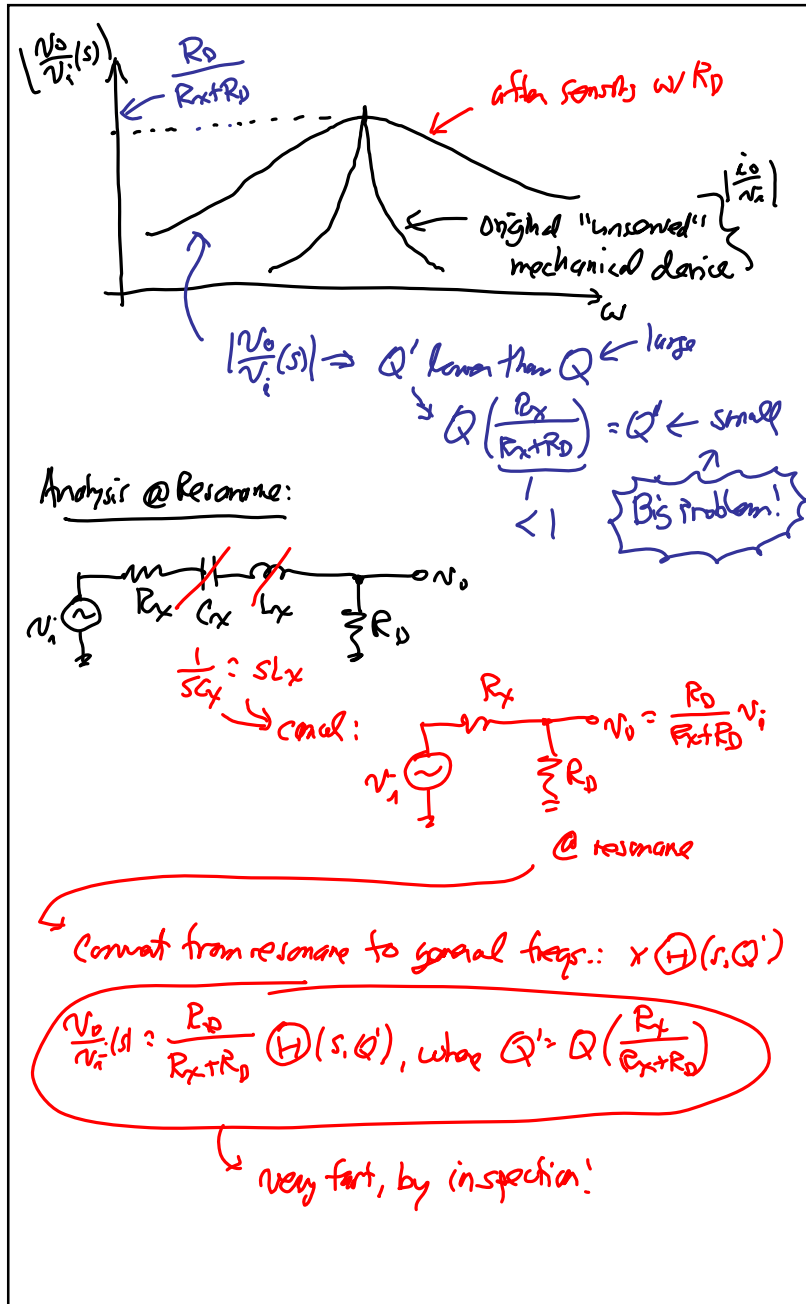 |v₀/vᵢ(s)|
R_D/(Rₓ+R_D)
after sensing w/ R_D
|i₀/vᵢ|
original "unsensed"
mechanical device
ω
|v₀/vᵢ(s)| ⇒ Q' lower than Q ← large
Q(Rₓ/(Rₓ+R_D)) = Q' ← small
< 1
Big Problem!
Analysis @ Resonance:
vᵢ Rₓ Cₓ Lₓ R_D v₀
1/(sCₓ) = sLₓ
cancel:
vᵢ Rₓ R_D v₀ = R_D/(Rₓ+R_D) vᵢ
@ resonance
Convert from resonance to general freqs.: × Ⓗ(s,Q')
v₀/vᵢ(s) = R_D/(Rₓ+R_D) Ⓗ(s,Q'), where Q' = Q(Rₓ/(Rₓ+R_D))
very fast, by inspection!